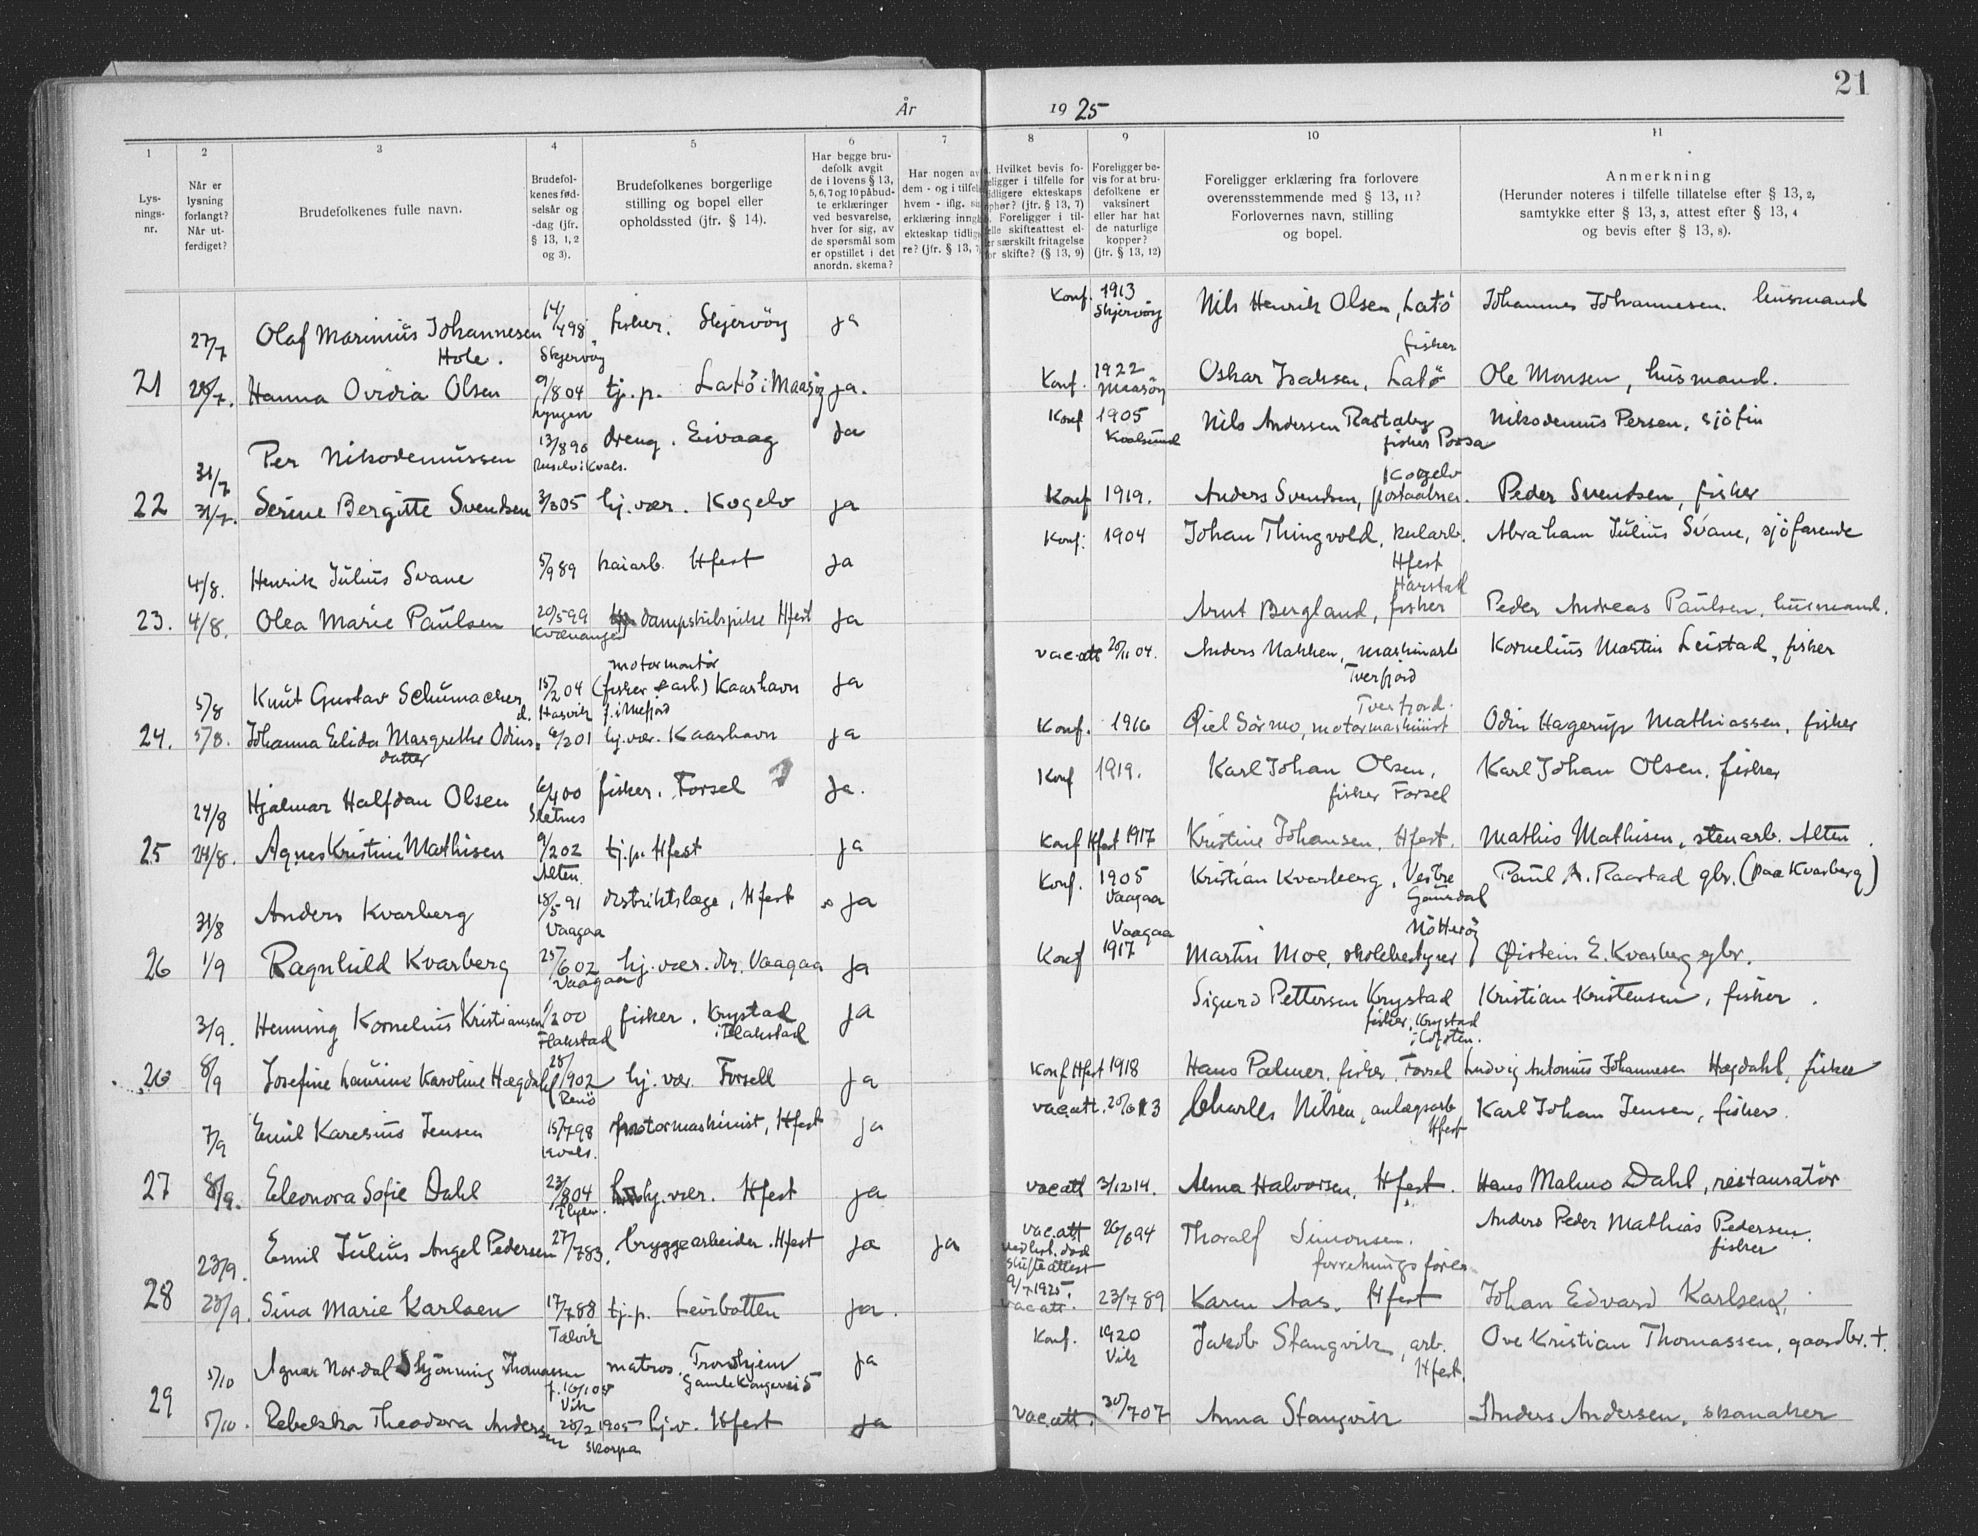 21
År 19 25
1 2 3 4 5 6 7 8 9 10 11
Lysningsnr.
Når er lysning forlangt? Når utferdiget?
Brudefolkenes fulle navn.
Brudefolkenes fødselsår og -dag (jfr. § 13, 1, 2 og 3).
Brudefolkenes borgerlige stilling og bopel eller opholdssted (jfr. § 14).
Har begge brudefolk avgit de i lovens § 13, 5, 6, 7 og 10 påbudte erklæringer ved besvarelse, hver for sig, av de spørsmål som er opstillet i det anordn. skema?
Har nogen av dem - og i tilfelle hvem - iflg. sin erklæring inngått ekteskap tidligere? (jfr. § 13, 7
Hvilket bevis foreligger i tilfelle for tidligere ekteskaps ophør? (jfr. § 13, 7) Foreligger i tilfelle skifteattest eller særskilt fritagelse for skifte? (§ 13, 9)
Foreligger bevis for at brudefolkene er vaksinert eller har hat de naturlige kopper? (jfr. § 13, 12)
Foreligger erklæring fra forlovere overensstemmende med § 13, 11? Forlovernes navn, stilling og bopel.
Anmerkning (Herunder noteres i tilfelle tillatelse efter § 13, 2, samtykke efter § 13, 3, attest efter § 13, 4 og bevis efter § 13, 8).
27/7 Olaf Marinius Johannesen Hole. 14/498 Skjervöy fisker. Skjervöy ja Konf. 1913 Skjervöy Nils Henrik Olsen, Latö fisker Johannes Johannesen. husmand
21 28/7. Hanna Ovidia Olsen 9/804 Lyngen tj.p. Latö i Maasöy ja. Konf. 1922 Maasöy Oskar Isaksen, Latö Ole Monsen, husmand.
31/7 Per Nikodemussen 13/896 Kvals. dreng. Eivaag ja Konf 1905 Kvalsund Nils Andersen Rastaby fisker Porsa Nikodemus Persen, sjöfin
22 31/7. Serine Bergitte Svendsen 3/305 hj.vær. Kogelv ja Konf 1919. Anders Svendsen, Kogelv postaabner. Peder Svendsen, fisker
4/8. Henrik Julius Svane 5/989 kaiarb. Hfest ja Konf. 1904 Johan Thingvold, kularb. Hfest Abraham Julius Svane, sjöfarende
23. 4/8. Olea Marie Paulsen 20/599 Kvænangen dampskibspike Hfest ja Arnt Bergland, Harstad fisker Peder Andreas Paulsen, husmand.
5/8 Knut Gustav Schumacher d. 15/204 Hasvik motormontör (fisker & arb.) Kaarhavn f. i Mefjord ja vac.att 20/11 04. Anders Nakken, maskinarb Tverfjord Kornelius Martin Leistad, fisker
24. 5/8. Johanna Elida Margrethe Odinsdatter 6/201 hj.vær. Kaarhavn ja Konf. 1916 Qiel Sörmo, motormaskinist Tverfjord. Odin Hagerup Mathiassen, fisker
24/8 Hjalmar Halfdan Olsen 6/400 Sletnes fisker. Forsøl ja. Konf 1919. Karl Johan Olsen, fisker Forsøl Karl Johan Olsen, fisker
25 24/8. Agnes Kristine Mathisen 9/202 Alten. tj.p. Hfest ja Konf Hfest 1917 Kristine Johansen, Hfest. Mathis Mathisen, stenarb. Alten.
31/8 Anders Kvarberg 18/591 Vaagaa distriktslæge, Hfest ja Konf. 1905 Vaagaa Kristian Kvarberg, Vestre Gausdal Paul A. Raastad gbr. (paa Kvarberg)
26 1/9 Ragnhild Kvarberg 25/602 Vaagaa hj.vær. Vaagaa ja Konf Vaagaa 1917 Martin Moe, skolebestyrer Nötteröy Øistein E. Kvarberg gbr.
3/9. Henning Kornelius Kristiansen 1/200 Flakstad fisker. Krystad i Flakstad ja Sigurd Pettersen Krystad fisker, Krystad i Lofoten. Kristian Kristensen, fisker.
26 8/9 Josefine Laurine Karoline Hægdahl 28/1902 Renö hj.vær. Forsøll ja Konf Hfest 1918 Hans Palmer, fisker, Forsøl Ludvig Antonius Johannesen Hægdahl, fisker
7/9 Emil Karesius Jensen 15/798 Kvals. motormaskinist, Hfest ja vac.att. 20/6 13 Charles Nilsen, anlægsarb. Hfest Karl Johan Jensen, fisker.
27 8/9. Eleonora Sofie Dahl 23/804 hj.vær. Hfest ja vac.att 3/12 14. Alma Halvorsen, Hfest. Hans Malmo Dahl, restauratör
23/9. Emil Julius Angel Pedersen 27/783. bryggearbeider. Hfest ja ja vac.att skifteattest 9/7 1925. 26/6 94 Thoralf Simonsen. forretningsförer Anders Peder Mathias Pedersen. fisker
28 23/9. Sina Marie Karlsen 17/788 Talvik tj.p. Leirbotten ja. vac.att. 23/7 89 Karen Aas. Hfest Johan Edvard Karlsen.
5/10 Agnar Nordal Skjönning Thomassen f. 16/10 Vik matros. Trondhjem Gamle Kongevei 5 ja Konf. 1920 Vik Jakob Stangvik, arb. Hfest. Ove Kristian Thomassen, gaardbr. +.
29 5/10. Rebekka Theodora Andersen 28/2 1905 Skorpa hj.v. Hfest ja vac.att. 30/7 07 Anna Stangvik Anders Andersen, skomaker